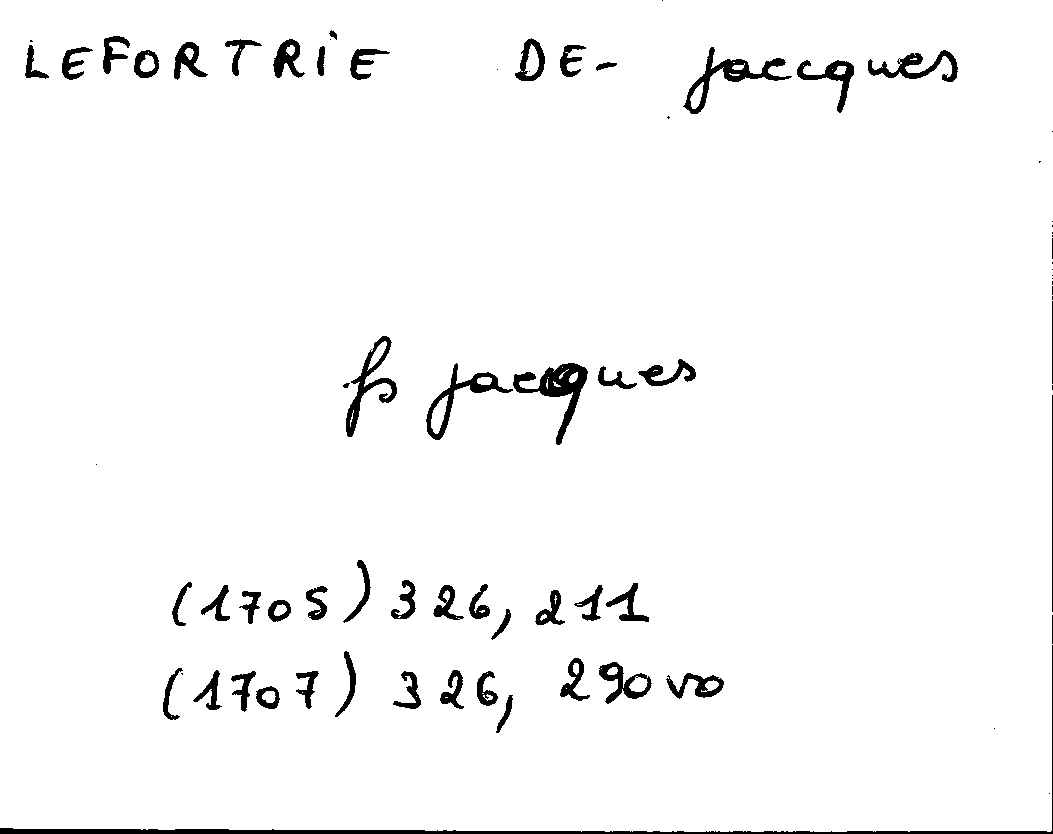 LEFORTRIE DE- jaccques
fs jacques
(1705) 326, 211
(1707) 326, 290 vo